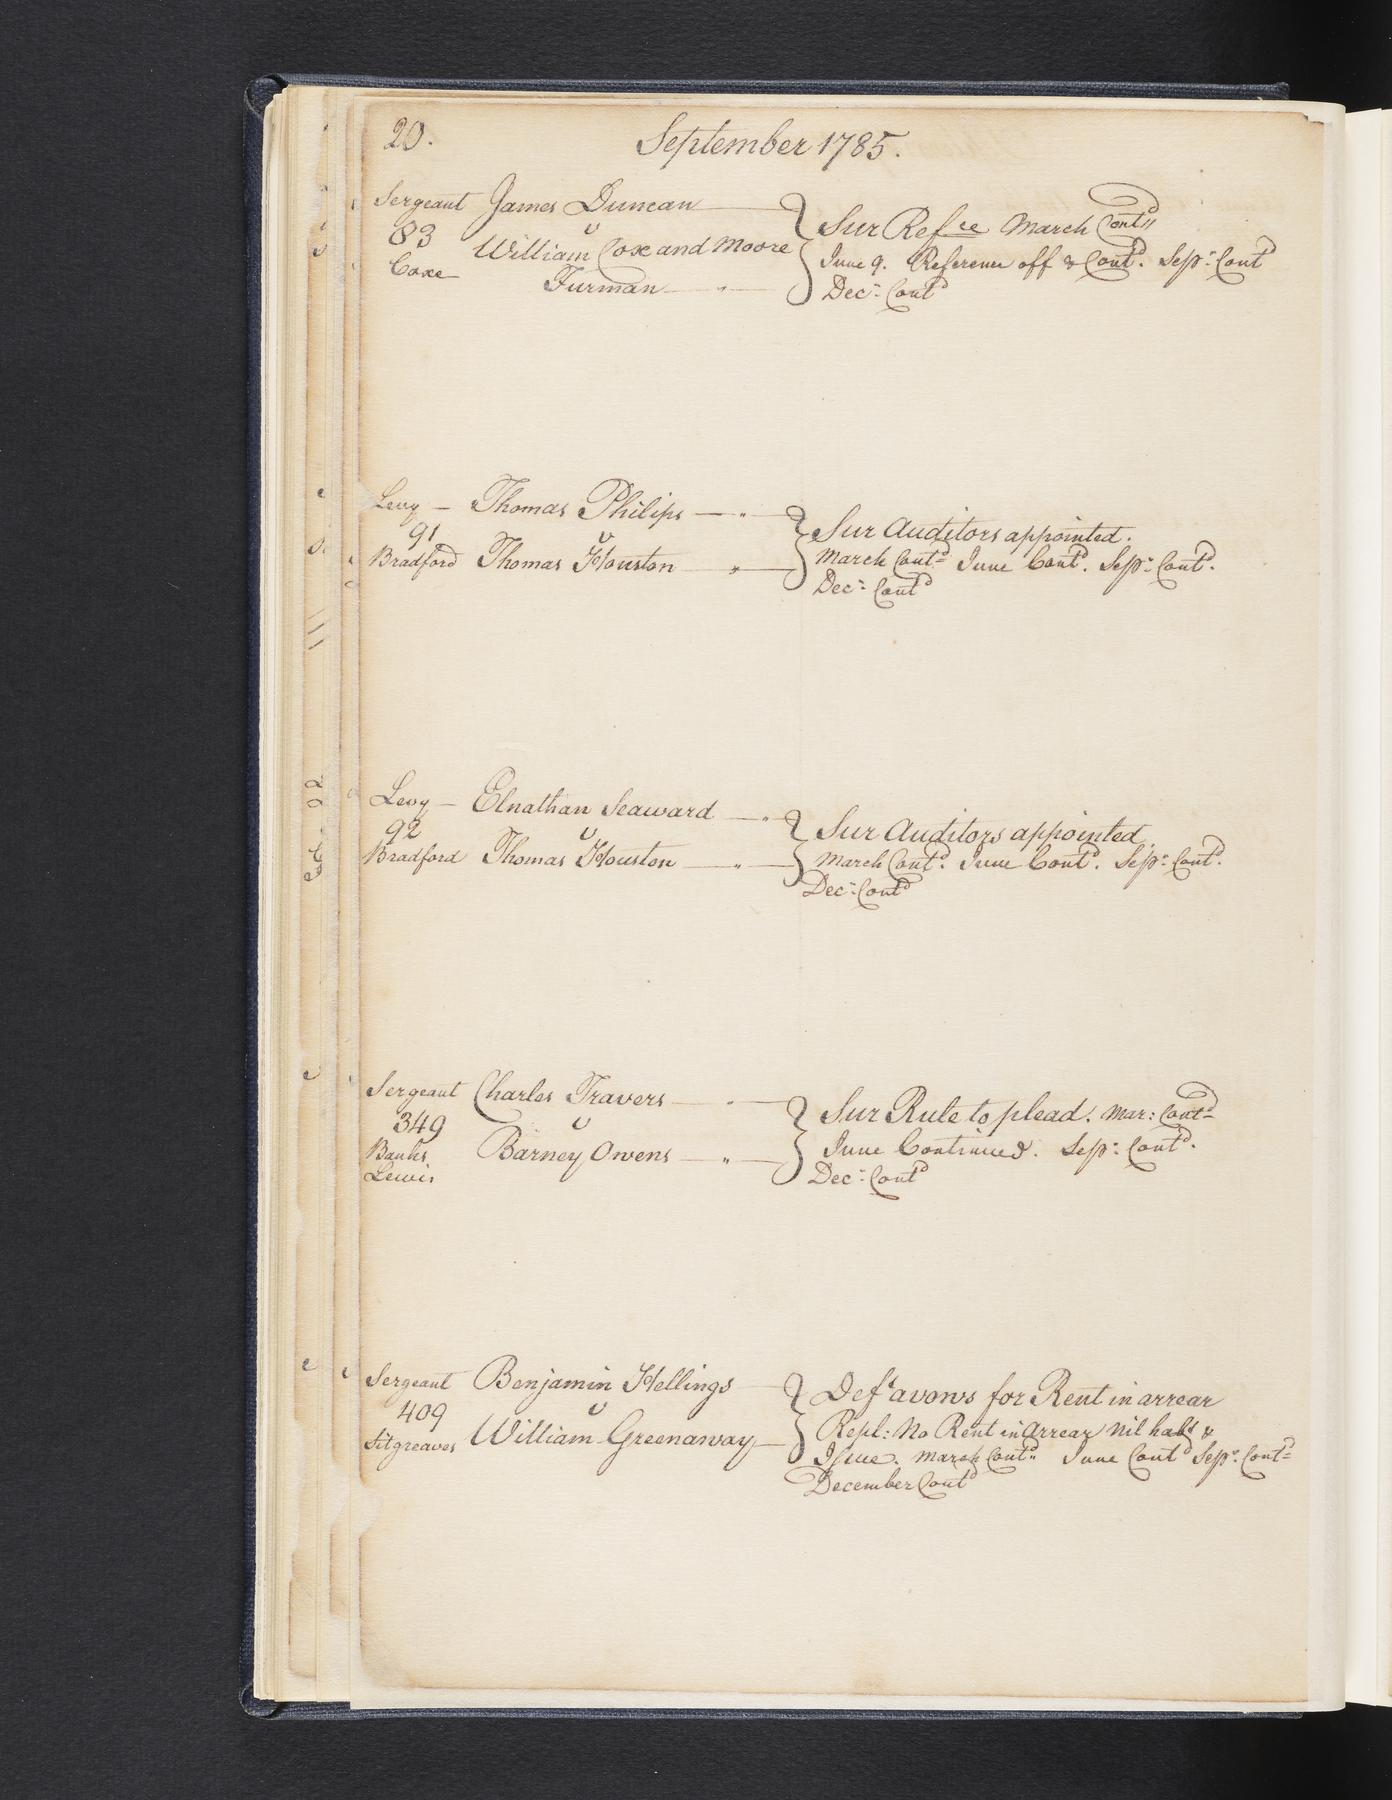 20. September 1785.
Sergeant James Duncan
83 v
William Coxe and Moore
Coxe Furman
Sur Ref.ce March Contd
June 9. Reference off & Contd. Sepr. Contd
Decr. Contd
Levy — Thomas Philips
91 v
Bradford Thomas Houston
Sur Auditors appointed.
March Contd June Contd. Sepr. Contd.
Decr. Contd
Levy — Elnathan Seaward
92 v
Bradford Thomas Houston
Sur Auditors appointed
March Contd. June Contd. Sepr. Contd.
Decr. Contd
Sergeant Charles Travers
349 v
Banks Barney Owens
Lewis
Sur Rule to plead. Mar: Contd
June Continued. Sepr: Contd.
Dec: Contd
Sergeant Benjamin Hellings
409 v
Fitgreaves William Greenaway
Deft avows for Rent in arrear
Repl: No Rent in Arrear Nil habt &
Issue. March Contd June Contd Sepr. Contd
December Contd